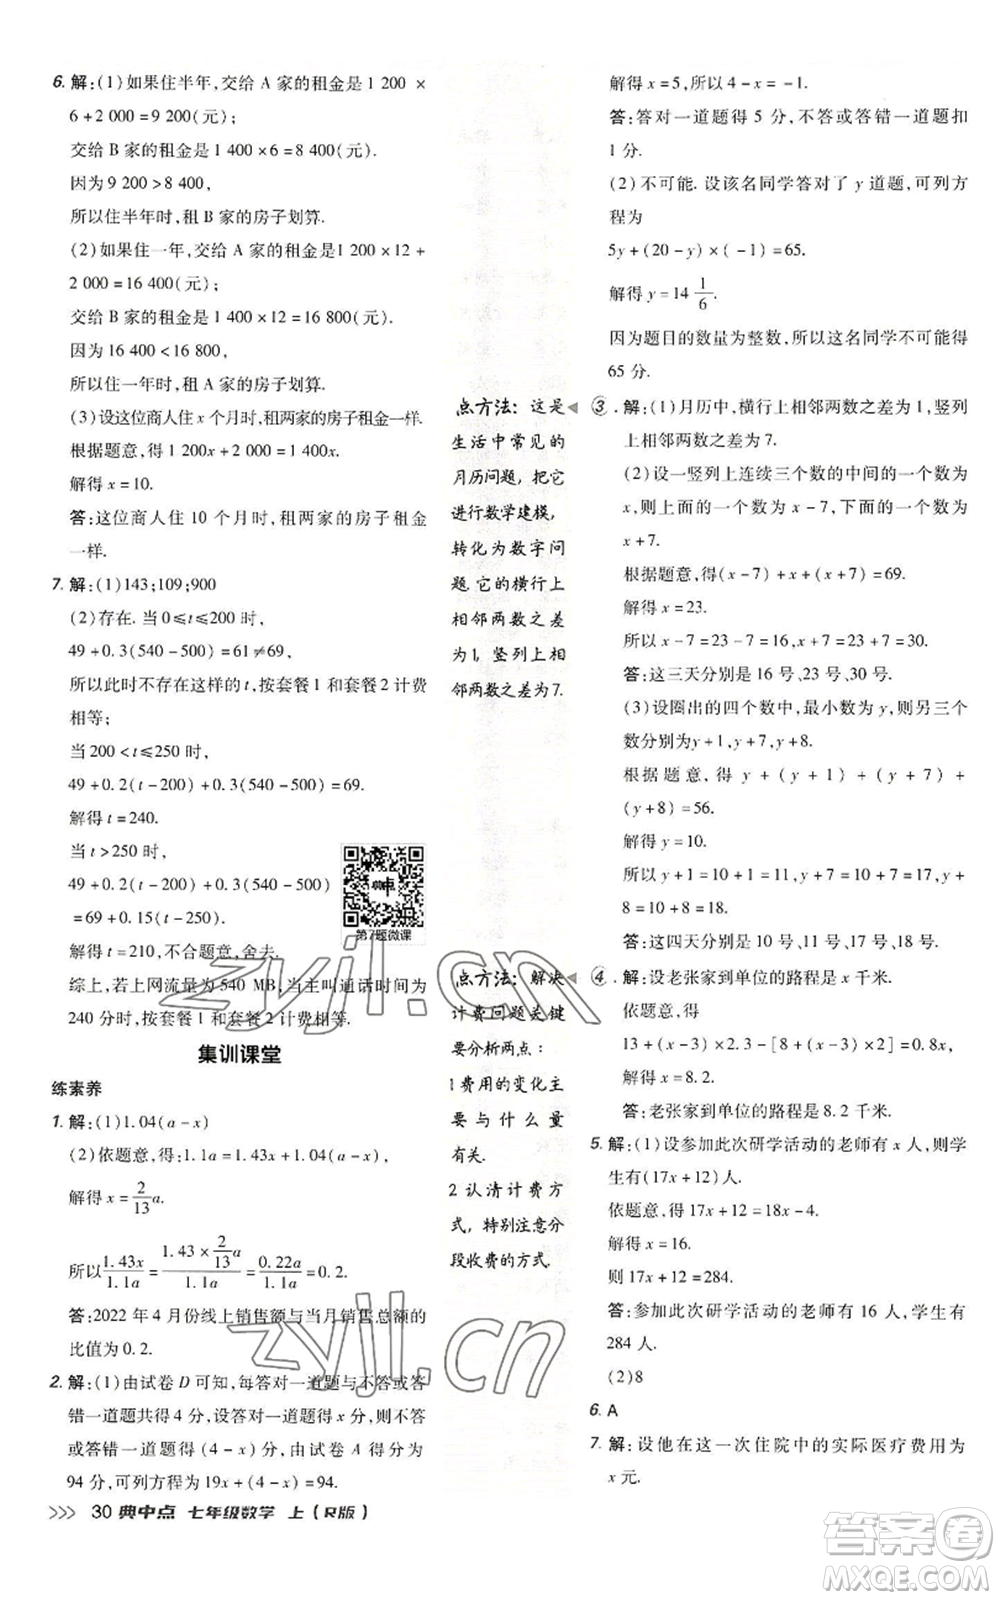 6. 解:(1)如果住半年,交给 A 家的租金是1 200 ×
6+2 000=9 200(元);
交给 B 家的租金是 1 400×6=8 400(元).
因为 9 200>8 400,
所以住半年时,租 B 家的房子划算.
(2)如果住一年,交给 A 家的租金是1 200×12+
2 000=16 400(元);
交给 B 家的租金是 1 400×12=16 800(元).
因为 16 400<16 800,
所以住一年时,租 A 家的房子划算.
(3)设这位商人住 x 个月时,租两家的房子租金一样.
根据题意,得 1 200x+2 000=1 400x.
解得 x=10.
答:这位商人住 10 个月时,租两家的房子租金
一样.
7. 解:(1)143;109;900
(2)存在. 当 0≤t≤200 时,
49+0.3(540-500)=61≠69,
所以此时不存在这样的 t,按套餐 1 和套餐 2 计费
相等;
当 200<t≤250 时,
49+0.2(t-200)+0.3(540-500)=69.
解得 t=240.
当 t>250 时,
49+0.2(t-200)+0.3(540-500)
=69+0.15(t-250).
解得 t=210,不合题意,舍去.
第7题微课
综上,若上网流量为 540 MB,当主叫通话时间为
240 分时,按套餐 1 和套餐 2 计费相等.
集训课堂
练素养
1. 解:(1)1.04(a-x)
(2)依题意,得:1.1a=1.43x+1.04(a-x).
解得 x=2/13a.
所以1.43x/1.1a=(1.43×2/13a)/1.1a=0.22a/1.1a=0.2.
答:2022 年 4 月份线上销售额与当月销售总额的
比值为 0.2.
2. 解:(1)由试卷 D 可知,每答对一道题与不答或答
错一道题共得 4 分,设答对一道题得 x 分,则不答
或答错一道题得 (4-x) 分,由试卷 A 答题得分为
94 分,可列方程为 19x+(4-x)=94.
解得 x=5,所以 4-x=-1.
答:答对一道题得 5 分,不答或答错一道题扣
1 分.
(2)不可能. 设该名同学答对了 y 道题,可列方
程为
5y+(20-y)×(-1)=65.
解得 y=14 1/6.
因为题目的数量为整数,所以这名同学不可能得
65 分.
点方法:这是
生活中常见的
月历问题,把它
进行数学建模,
转化为数字问
题.它的横行上
相邻两数之差
为1,竖列上相
邻两数之差为7.
③. 解:(1)月历中,横行上相邻两数之差为 1,竖列
上相邻两数之差为 7.
(2)设一竖列上连续三个数的中间的一个数为
x,则上面的一个数为 x-7,下面的一个数为
x+7.
根据题意,得(x-7)+x+(x+7)=69.
解得 x=23.
所以 x-7=23-7=16,x+7=23+7=30.
答:这三天分别是 16 号、23 号、30 号.
(3)设圈出的四个数中,最小数为 y,则另三个
数分别为y+1,y+7,y+8.
根据题意,得 y+(y+1)+(y+7)+
(y+8)=56.
解得 y=10.
所以 y+1=11,y+7=10+7=17,y+8=10+
8=18.
答:这四天分别是 10 号、11 号、17 号、18 号.
点方法:解决
计费问题关键
要分析两点:
1 费用的变化主
要与什么量
有关.
2 认清计费方
式,特别注意分
段收费的方式.
④. 解:设老张家到单位的路程是 x 千米.
依题意,得
13+(x-3)×2.3-[8+(x-3)×2]=9.56.
解得 x=8.2.
答:老张家到单位的路程是 8.2 千米.
5. 解:(1)设参加此次研学活动的老师有 x 人,则学
生有(17x+12)人.
依题意,得 17x+12=18x-4.
解得 x=16.
则 17x+12=284.
答:参加此次研学活动的老师有 16 人,学生有
284 人.
(2)8
6. A
7. 解:设他在这一次住院中的实际医疗费用为
x 元.
>>> 30 典中点 七年级数学 上(R版)
zyjl.cn
zyjl.cn
答案圈
MXQE.COM